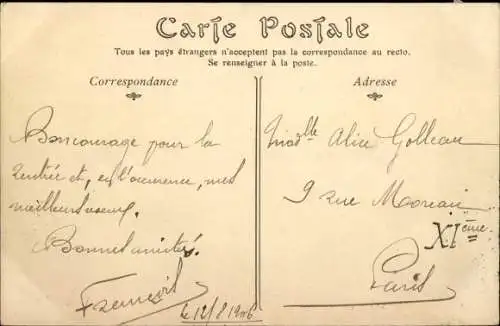 Carte Postale
Tous les pays étrangers n'acceptent pas la correspondance au recto.
Se renseigner à la poste.
Correspondance
Adresse
Bon courage pour la
rentrée et, en l'occurence, mes
meilleurs voeux.
Bonnes amitiés.
Mad^lle Alice
9 rue Moreau
XI^ème
Paris
le 12/8